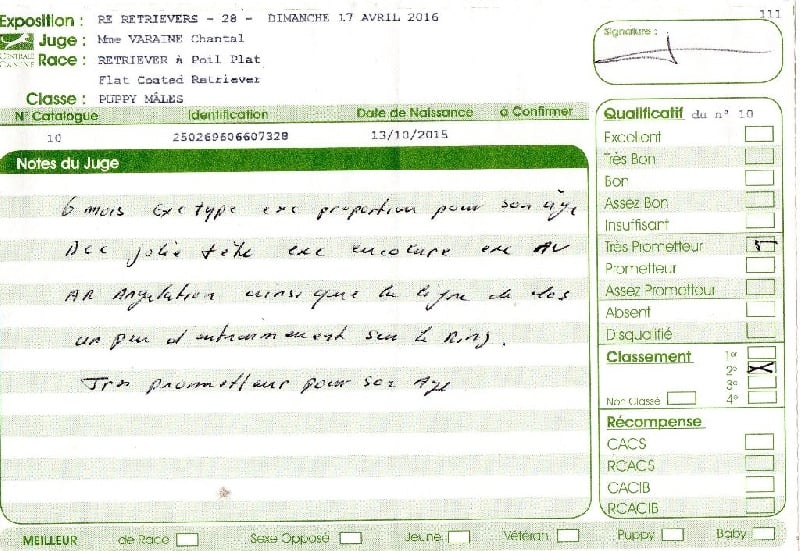 Exposition : RE RETRIEVERS - 28 - DIMANCHE 17 AVRIL 2016
111
Juge : Mme VARAINE Chantal
CENTRALE CANINE
Race : RETRIEVER à Poil Plat
Flat Coated Retriever
Classe : PUPPY MÂLES
Signature :
N° Catalogue Identification Date de Naissance à Confirmer
10 250269606607328 13/10/2015
Notes du Juge
6 mois exc type exc proportion pour son âge
jolie tête exc encolure exc AV
AR Angulation ainsi que la ligne de dos
un peu d'entrainement sur le Ring.
Très prometteur pour son Age
Qualificatif du n° 10
Excellent
Très Bon
Bon
Assez Bon
Insuffisant
Très Prometteur
Prometteur
Assez Prometteur
Absent
Disqualifié
Classement 1er
2e
3e
Non Classé 4e
Récompense
CACS
RCACS
CACIB
RCACIB
MEILLEUR de Race Sexe Opposé Jeune Vétéran Puppy Baby